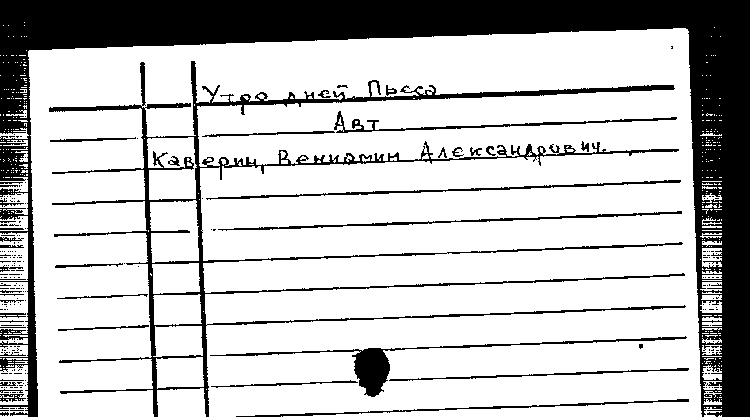 Утро дней. Пьеса
Авт
Каверин, Вениамин Александрович.